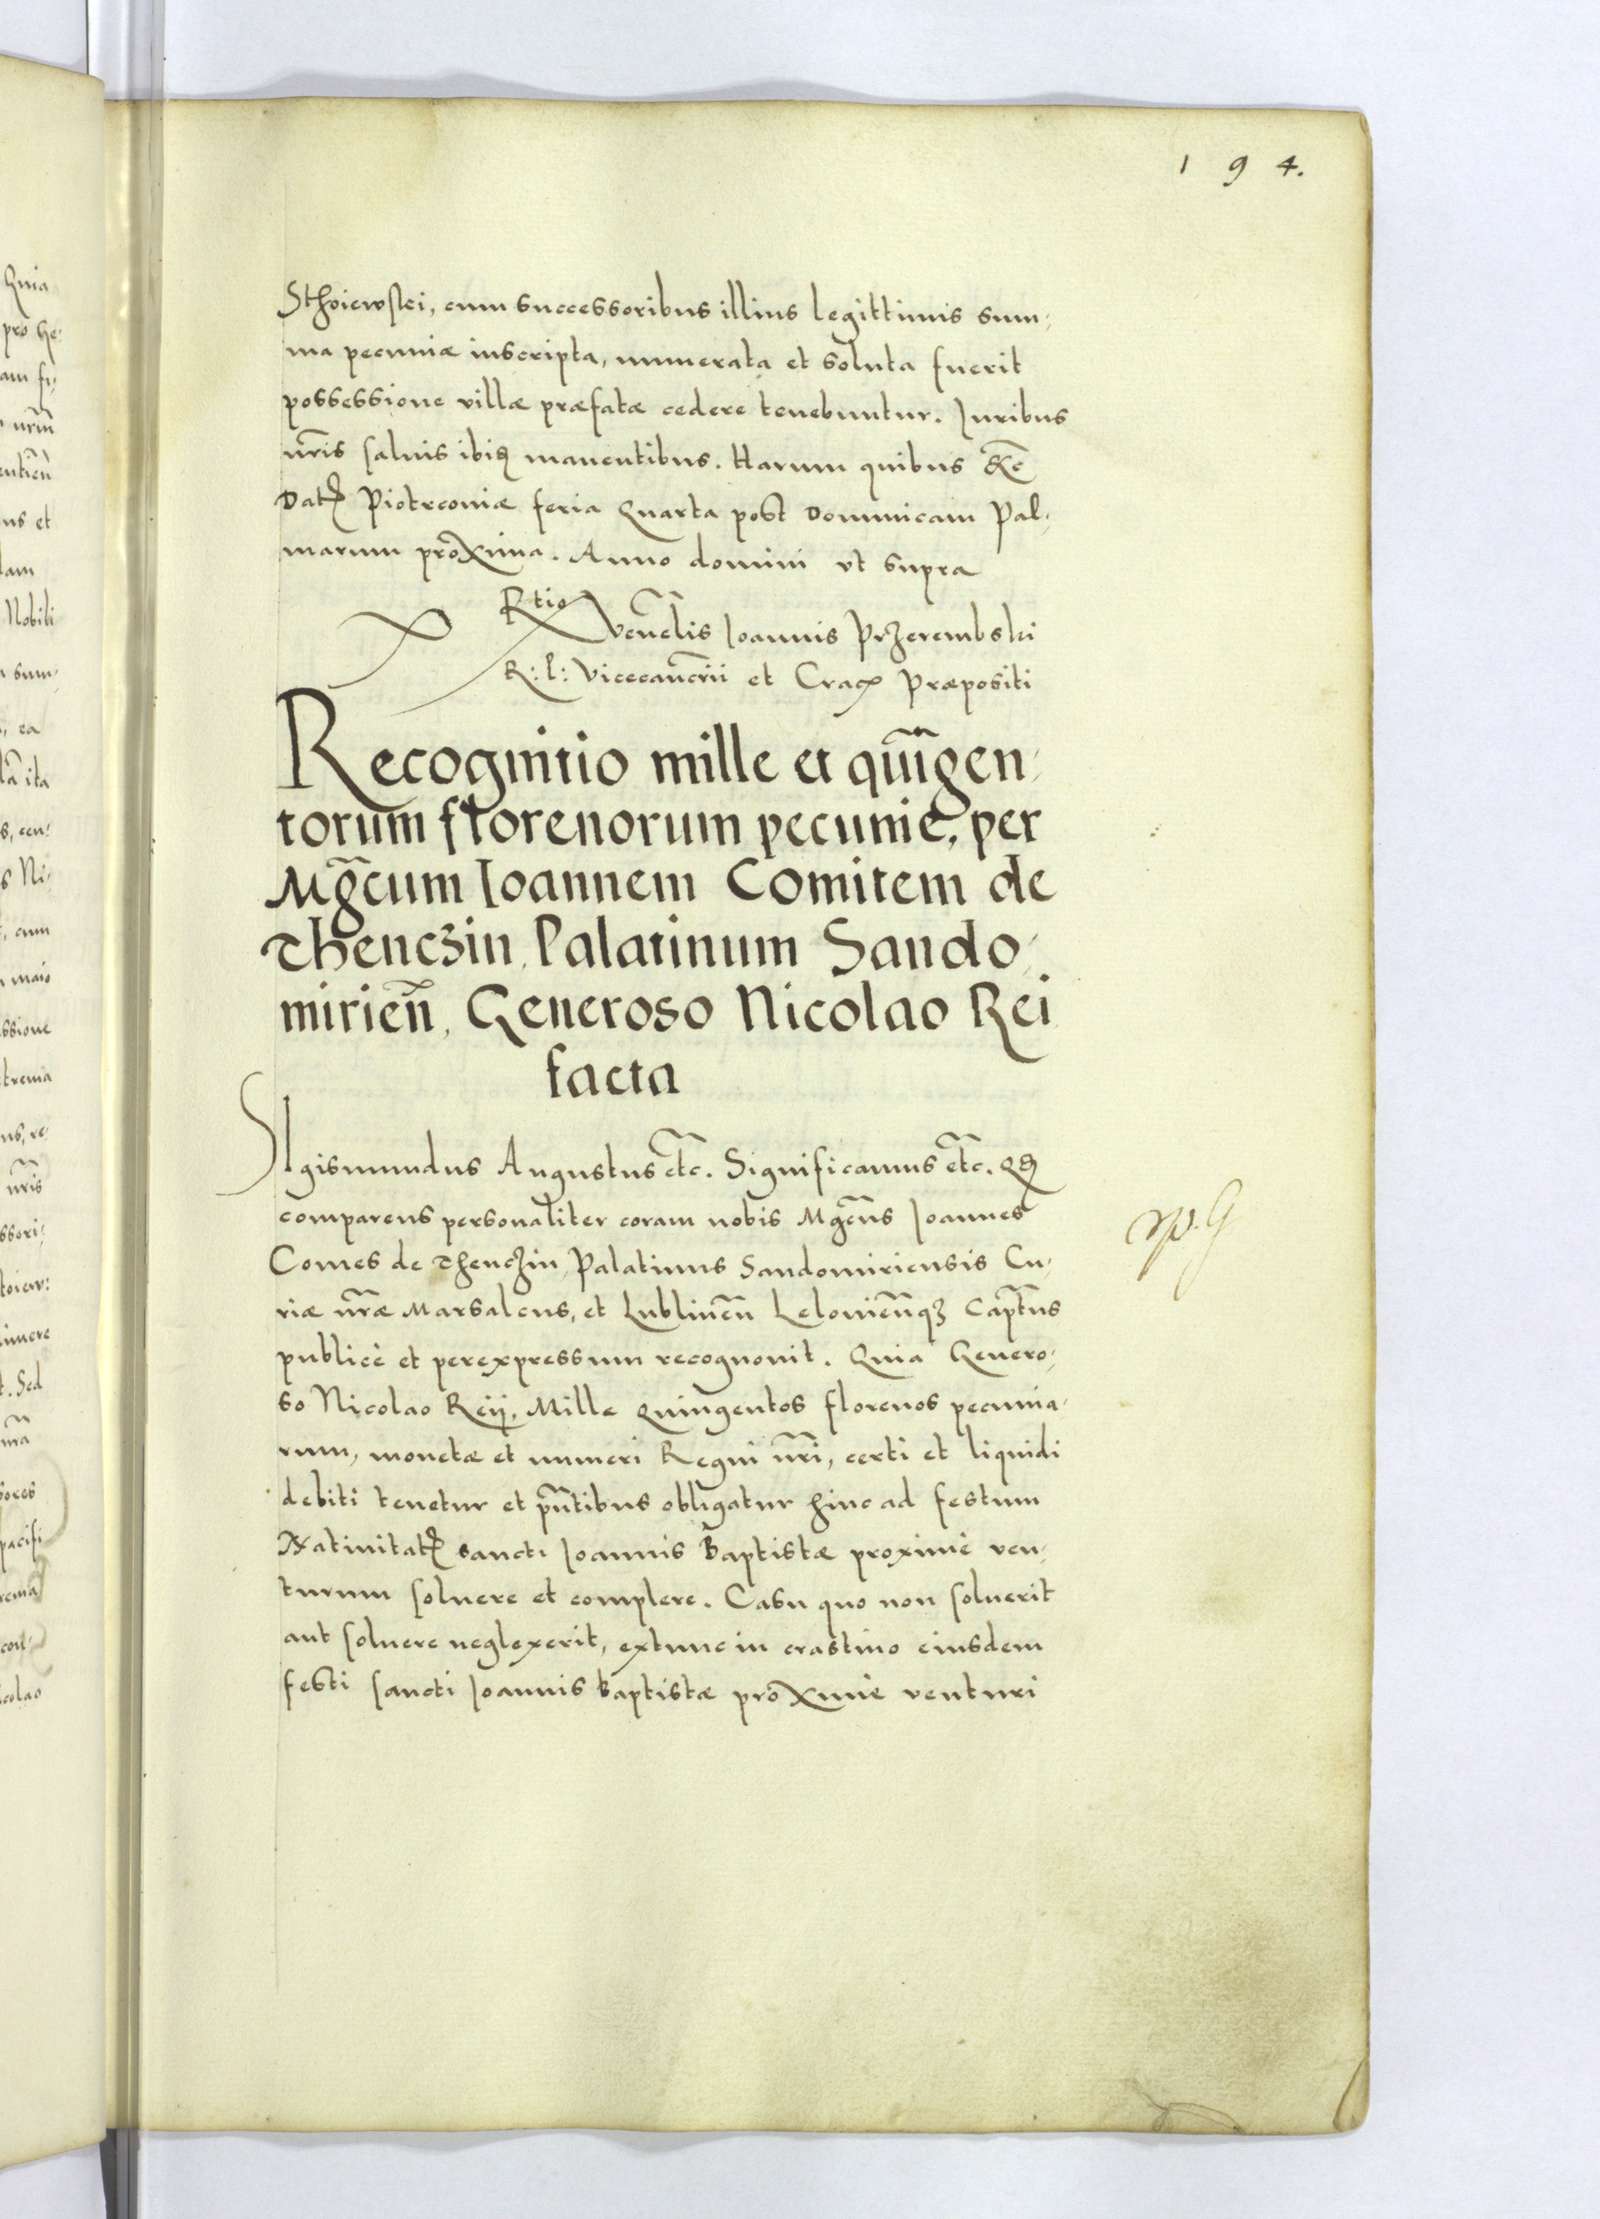 194.
Sthoiewskei, cum successoribus illius legittimis sum-
ma pecuniæ inscripta, numerata et soluta fuerit
possessione villæ præfatæ cedere tenebuntur. Iuribus
nr̃is salvis ibiq manentibus. Harum quibus &c̃
Datę Piotrcoviæ feria Quarta post Dominicam Pal-
marum proxima. Anno domini vt supra
Rtio Venẽlis Ioannis Przerembski
R: P: Vicecancr̃ii et Crac Præpositi
Recognitio mille et quĩgen-
torum florenorum pecunie, per
Mg̃cum Ioannem Comitem de
Thenczin, Palatinum Sando-
mirieñ, Generoso Nicolao Rei
facta
SIgismundus Augustus etc̃. Significamus etc̃. Qꝫ
comparens personaliter coram nobis Mgc̃us Ioannes
Comes de Thenczin, Palatinus Sandomiriensis Cu-
riæ nr̃æ Marsalcus, et Lublineñ Lelovieñqꝫ Capt̃us
publicè et per expressum recognovit. Quia Genero-
so Nicolao Reij, Mille Quingentos florenos pecunia-
rum, monetæ et numeri Regni nr̃i, certi et liquidi
debiti tenetur et pñtibus obligatur hinc ad festum
Natiuitatꝭ sancti Ioannis Baptistæ proximè ven-
turum soluere et complere. Casu quo non soluerit
aut soluere neglexerit, extunc in crastino eiusdem
festi sancti Ioannis Baptistæ proximè venturi